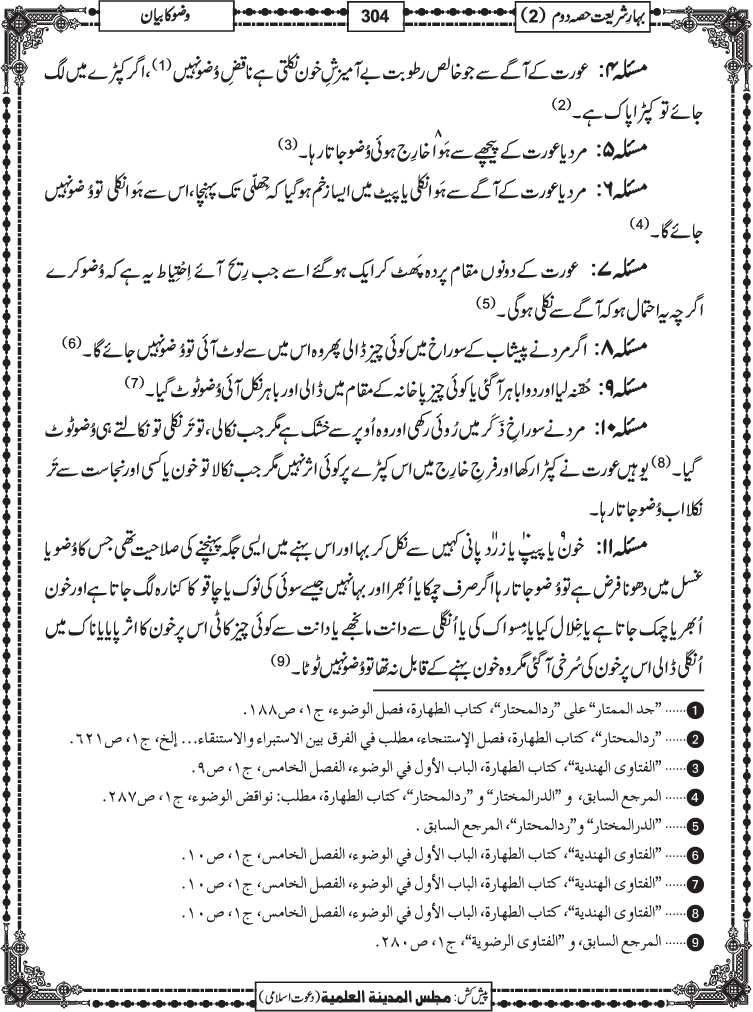 بہارِ شریعت حصہ دوم (2)
304
وضو کا بیان
مسئلہ ۴: عورت کے آگے سے جو خالص رطوبت بے آمیزشِ خون نکلتی ہے ناقضِ وُضو نہیں (1)، اگر کپڑے میں لگ
جائے تو کپڑا پاک ہے۔ (2)
مسئلہ ۵: مرد یا عورت کے پیچھے سے ہَوا ۸ خارِج ہوئی وُضو جاتا رہا۔ (3)
مسئلہ ۶: مرد یا عورت کے آگے سے ہَوا نکلی یا پیٹ میں ایسا زخم ہو گیا کہ جِھلّی تک پہنچا، اس سے ہَوا نکلی تو وُضو نہیں
جائے گا۔ (4)
مسئلہ ۷: عورت کے دونوں مقام پردہ پَھٹ کر ایک ہو گئے اسے جب رِیح آئے اِحْتِیاط یہ ہے کہ وُضو کرے
اگرچہ یہ احتمال ہو کہ آگے سے نکلی ہوگی۔ (5)
مسئلہ ۸: اگر مرد نے پیشاب کے سوراخ میں کوئی چیز ڈالی پھر وہ اس میں سے لوٹ آئی تو وُضو نہیں جائے گا۔ (6)
مسئلہ ۹: حُقنہ لیا اور دوا باہر آگئی یا کوئی چیز پاخانہ کے مقام میں ڈالی اور باہر نکل آئی وُضو ٹوٹ گیا۔ (7)
مسئلہ ۱۰: مرد نے سوراخِ ذَکَر میں رُوئی رکھی اور وہ اُوپر سے خشک ہے مگر جب نکالی، تو تَر نکلی تو نکالتے ہی وُضو ٹوٹ
گیا۔ (8) یوہیں عورت نے کپڑا رکھا اور فرجِ خارِج میں اس کپڑے پر کوئی اثر نہیں مگر جب نکالا تو خون یا کسی اور نجاست سے تَر
نکلا اب وُضو جاتا رہا۔
مسئلہ ۱۱: خون ۹ یا پیپ ۱۰ یا زرد ۱۱ پانی کہیں سے نکل کر بہا اور اس بہنے میں ایسی جگہ پہنچنے کی صلاحیت تھی جس کا وُضو یا
غسل میں دھونا فرض ہے تو وُضو جاتا رہا اگر صرف چمکا یا اُبھرا اور بہا نہیں جیسے سوئی کی نوک یا چاقو کا کنارہ لگ جاتا ہے اور خون
اُبھر یا چمک جاتا ہے یا خِلال کیا یا مِسواک کی یا اُنگلی سے دانت مانجھے یا دانت سے کوئی چیز کاٹی اس پر خون کا اثر پایا یا ناک میں
اُنگلی ڈالی اس پر خون کی سُرخی آگئی مگر وہ خون بہنے کے قابل نہ تھا تو وُضو نہیں ٹوٹا۔ (9)
1 ...... ”جد الممتار“ على ”ردالمحتار“، كتاب الطهارة، فصل الوضوء، ج١، ص١٨٨.
2 ...... ”ردالمحتار“، كتاب الطهارة، فصل الإستنجاء، مطلب في الفرق بين الاستبراء والاستنقاء... إلخ، ج١، ص٦٢١.
3 ...... ”الفتاوى الهندية“، كتاب الطهارة، الباب الأول في الوضوء، الفصل الخامس، ج١، ص٩.
4 ...... المرجع السابق، و ”الدرالمختار“ و ”ردالمحتار“، كتاب الطهارة، مطلب: نواقض الوضوء، ج١، ص٢٨٧.
5 ...... ”الدرالمختار“ و”ردالمحتار“، المرجع السابق .
6 ...... ”الفتاوى الهندية“، كتاب الطهارة، الباب الأول في الوضوء، الفصل الخامس، ج١، ص١٠.
7 ...... ”الفتاوى الهندية“، كتاب الطهارة، الباب الأول في الوضوء، الفصل الخامس، ج١، ص١٠.
8 ...... ”الفتاوى الهندية“، كتاب الطهارة، الباب الأول في الوضوء، الفصل الخامس، ج١، ص١٠.
9 ...... المرجع السابق، و ”الفتاوى الرضوية“، ج١، ص٢٨٠.
پیش کش: مجلس المدينة العلمية (دعوت اسلامی)